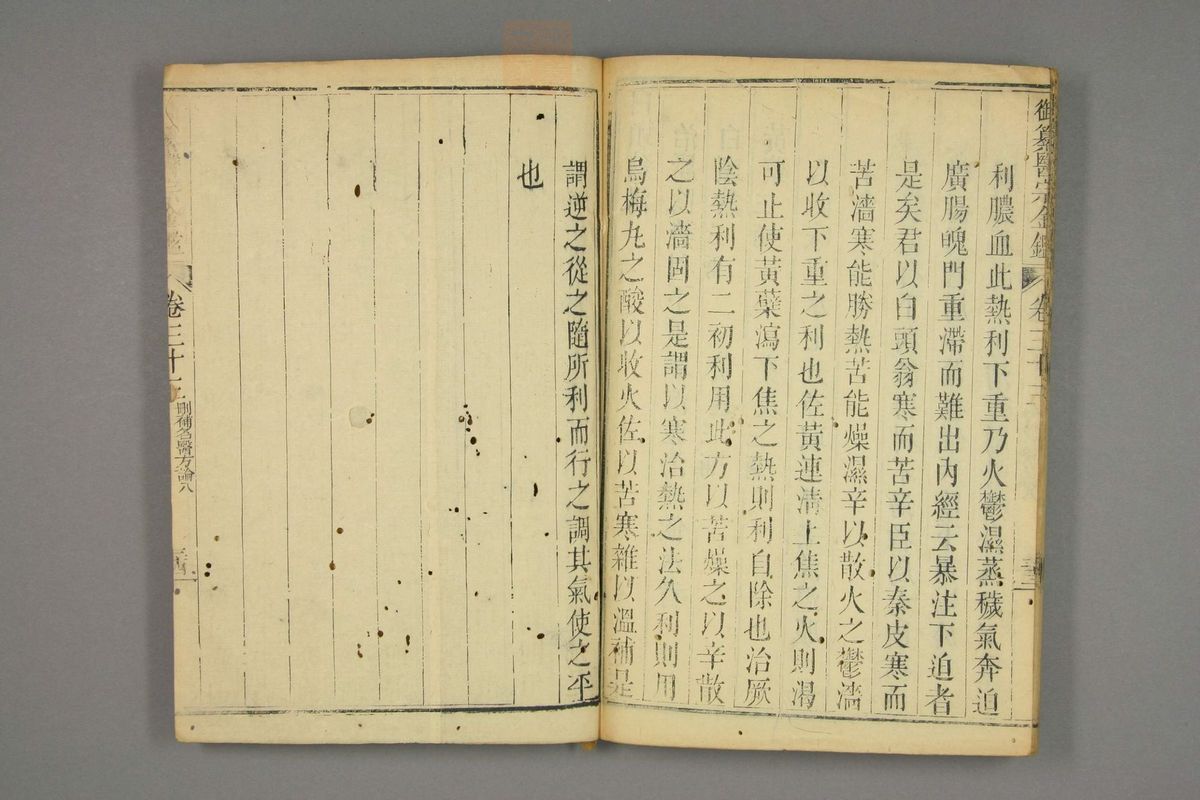 御纂醫宗金鑑
卷三十三
利膿血此熱利下重乃火鬱濕蒸穢氣奔迫
廣腸魄門重滯而難出內經云暴注下迫者
是矣君以白頭翁寒而苦辛臣以秦皮寒而
苦濇寒能勝熱苦能燥濕辛以散火之鬱濇
以收下重之利也佐黃連清上焦之火則渴
可止使黃蘗瀉下焦之熱則利自除也治厥
陰熱利有二初利用此方以苦燥之以辛散
之以濇固之是謂以寒治熱之法久利則用
烏梅丸之酸以收火佐以苦寒雜以溫補是
謂逆之從之隨所利而行之調其氣使之平
也
卷三十三
刪補名醫方論八